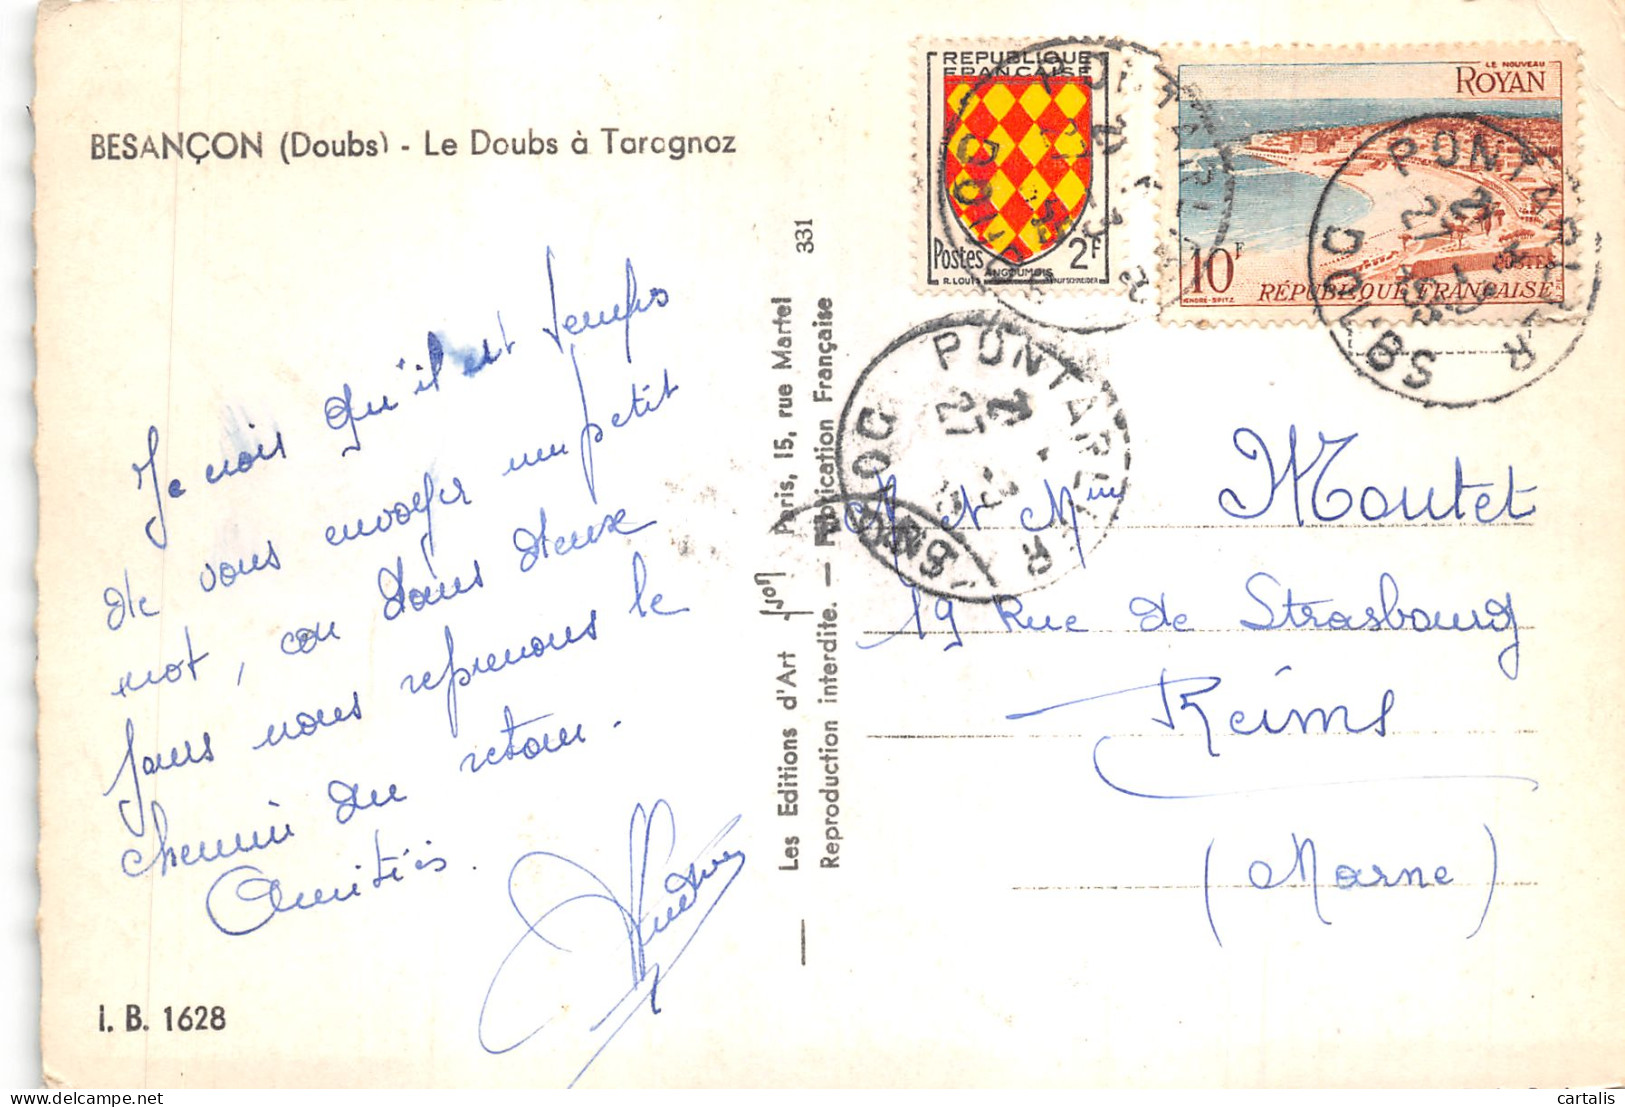 BESANÇON (Doubs) - Le Doubs à Taragnoz
Je crois qu'il est temps
de vous envoyer un petit
mot, car dans deux
jours nous reprenons le
chemin du retour.
Amitiés.
I. B. 1628
Les Editions d'Art Yvon Paris, 15, rue Martel 331
Reproduction interdite. — Fabrication Française
REPUBLIQUE
FRANÇAISE
Postes 2F
ANGOUMOIS
R. LOUIS
LE NOUVEAU
ROYAN
10F
POSTES
RÉPUBLIQUE FRANÇAISE
PONTARLIER
DOUBS
PONTARLIER
DOUBS
PONTARLIER
DOUBS
Moutet
19 Rue de Strasbourg
Reims
(Marne)
cartalis